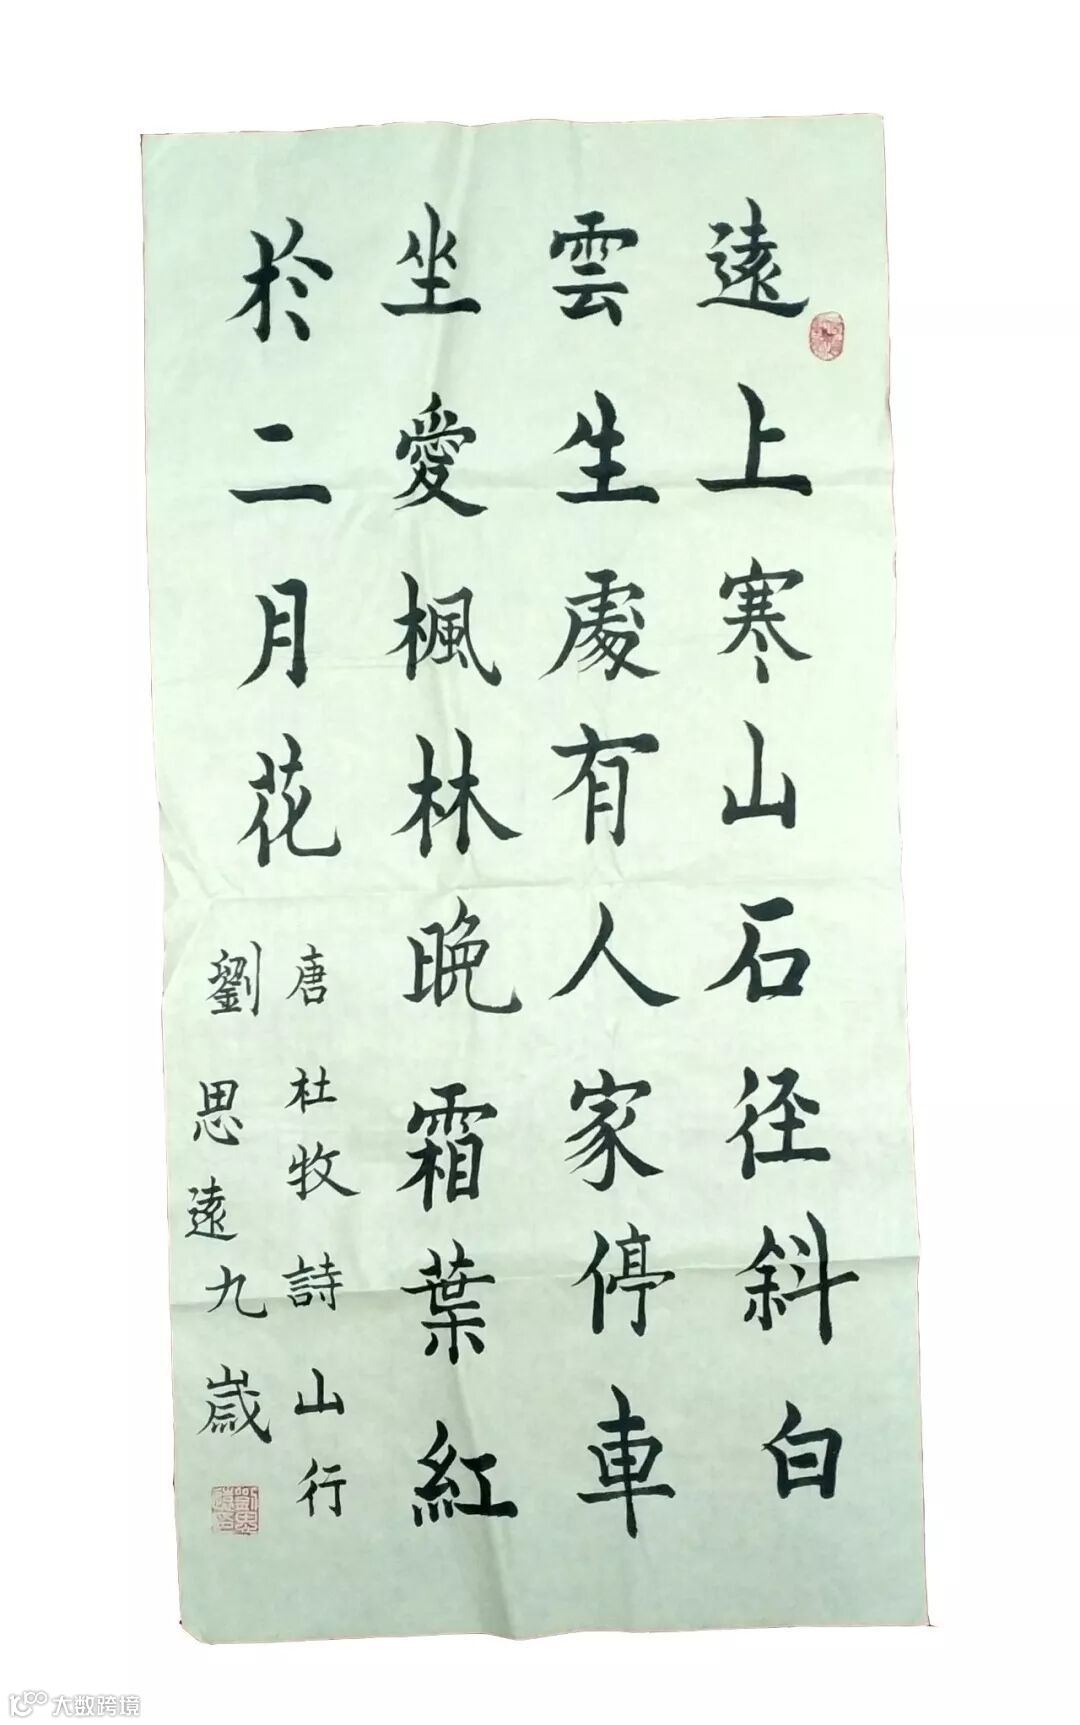 遠上寒山石径斜白
雲生處有人家停車
坐愛楓林晚霜葉紅
於二月花
唐杜牧詩山行
劉思遠九歲
大数跨境